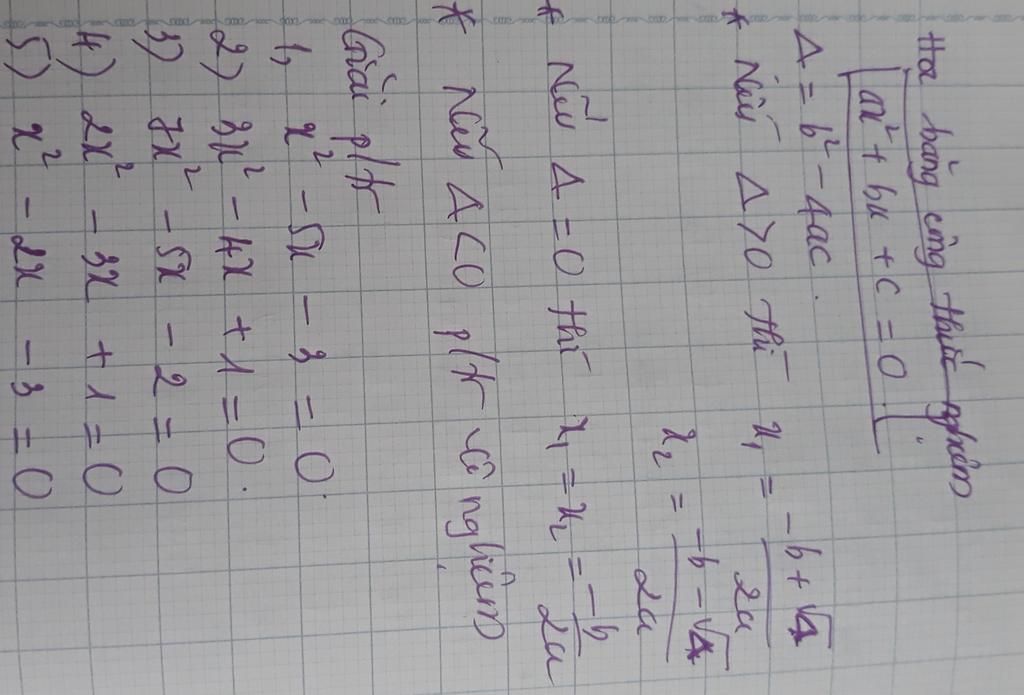 Hoá bằng công thức nghiệm
ax² + bx + c = 0.
Δ = b² - 4ac.
* Nếu Δ > 0 thì x₁ = \frac{-b + √Δ}{2a}
x₂ = \frac{-b - √Δ}{2a}
* Nếu Δ = 0 thì x₁ = x₂ = \frac{-b}{2a}
* Nếu Δ < 0 p/tr vô nghiệm
Giải p/tr
1, x² - 5x - 3 = 0.
2) 3x² - 4x + 1 = 0.
3) 7x² - 5x - 2 = 0
4) 2x² - 3x + 1 = 0
5) x² - 2x - 3 = 0